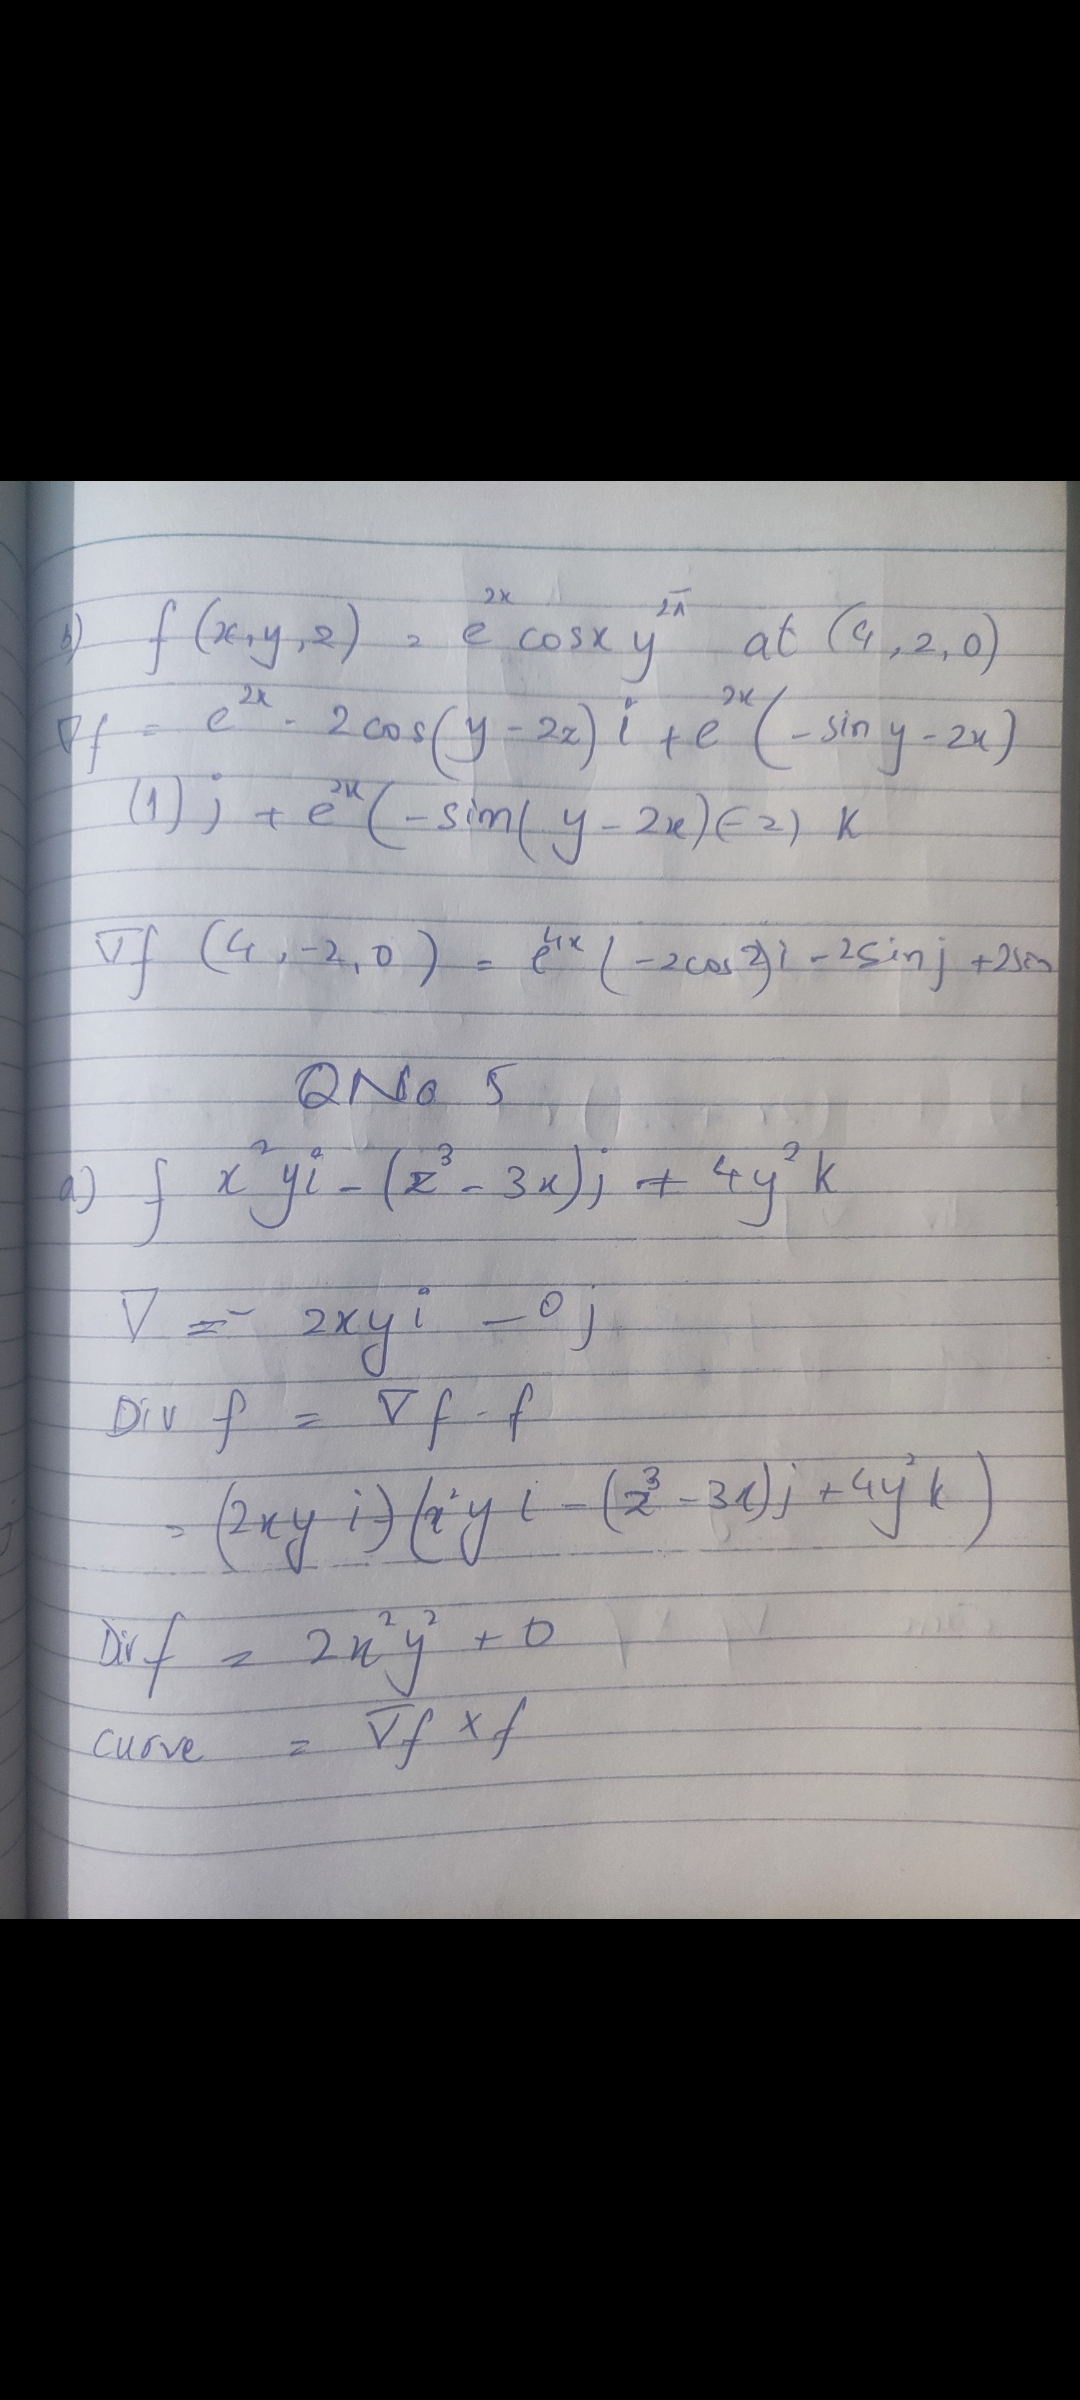 b) f(x,y,z) = e^2x cosx y^2π at (4,2,0)
∇f = e^2x - 2cos(y-2z)i + e^2x(-sin y-2x)
(1)j + e^2x(-sin(y-2x)(-2) k
∇f (4,-2,0) = e^4x(-2cos2)i - 2sinj + 2sin
QNo 5
a) f x²yi - (z³-3x)j + 4y²k
∇ = - 2xyi - 0j
Div f = ∇f - f
= (2xy i)(x²yi - (z³-3x)j + 4y²k)
Div f = 2x²y² + 0
curve = ∇f × f